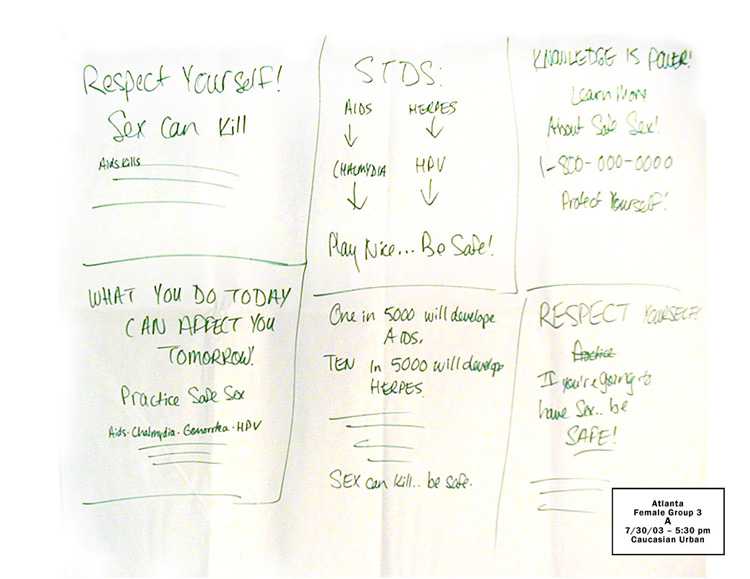 Respect Yourself!
Sex Can Kill
Aids kills
STDS:
AIDS HERPES
CHALMYDIA HPV
Play Nice... Be Safe!
KNOWLEDGE IS POWER!
Learn More
About Safe Sex!
1-800-000-0000
Protect Yourself!
WHAT YOU DO TODAY
CAN AFFECT YOU
TOMORROW!
Practice Safe Sex
Aids-Chalmydia-Genorrhea-HPV
One in 5000 will develope
AIDS.
TEN in 5000 will develope
HERPES
SEX can kill.. be safe.
RESPECT YOURSELF!
Practice
If you're going to
have Sex.. be
SAFE!
Atlanta
Female Group 3
A
7/30/03 – 5:30 pm
Caucasian Urban